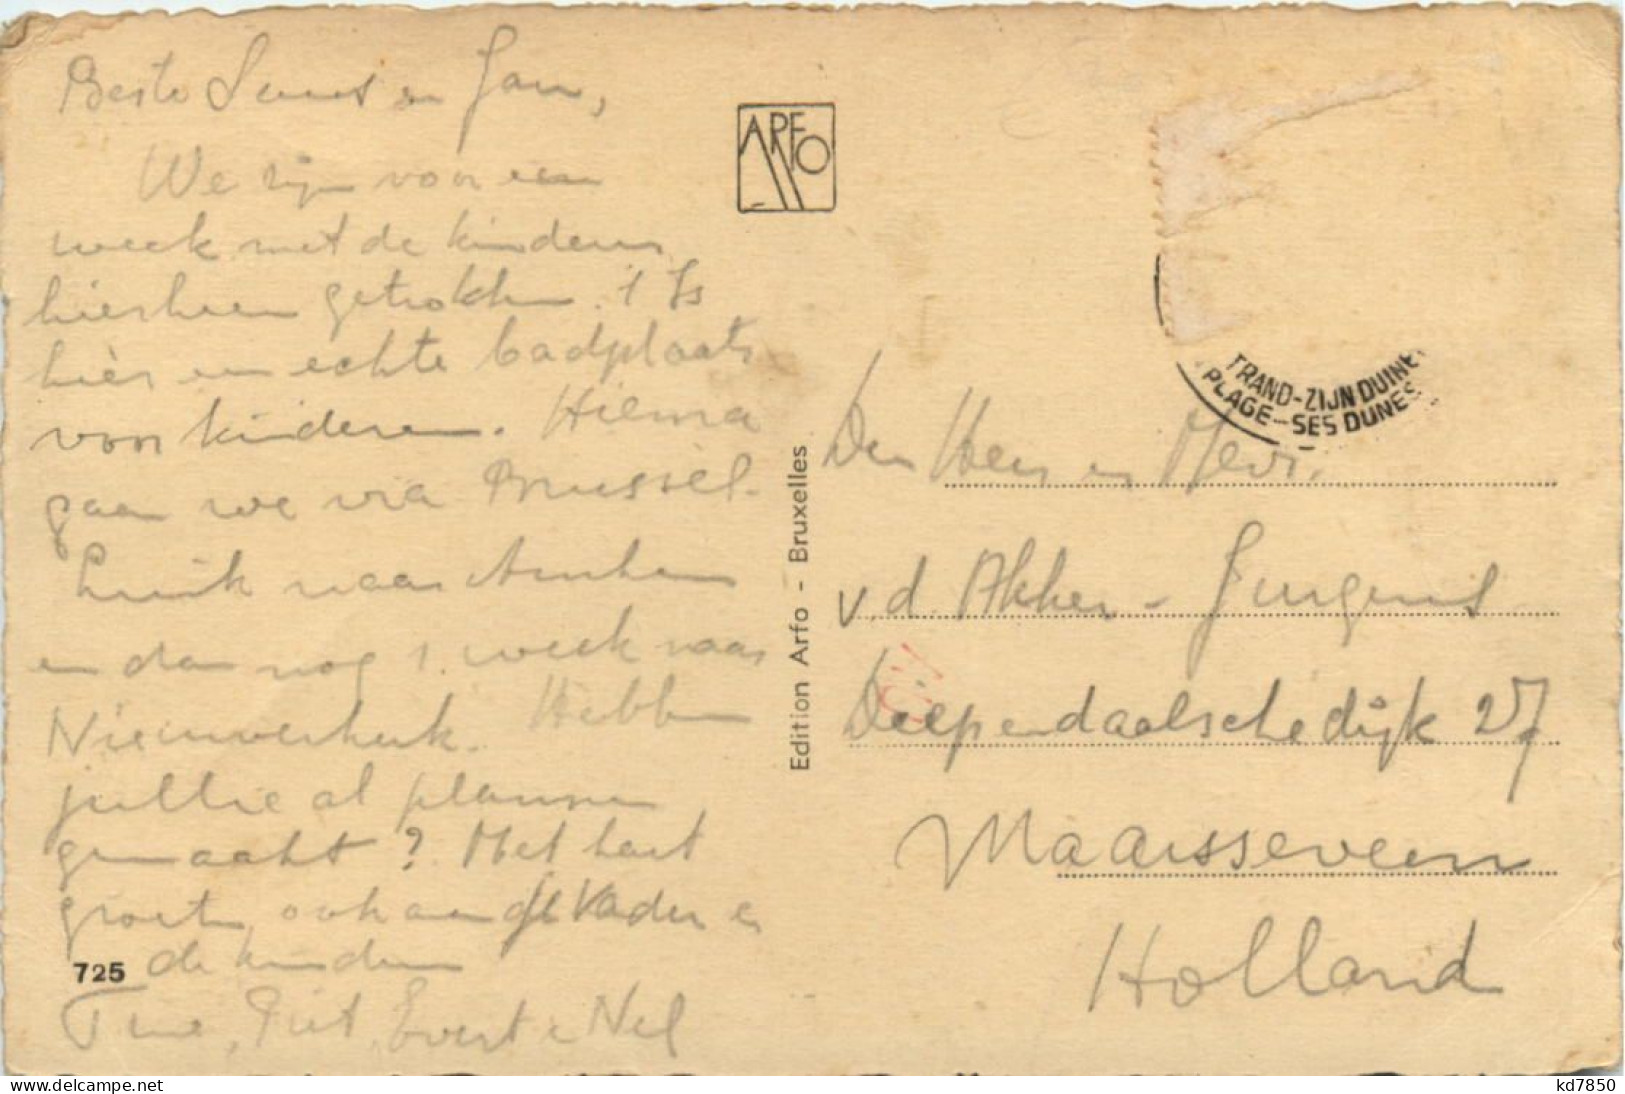 Beste en Jan,
We zijn voor een
week met de kinderen
hierheen getrokken. 't Is
hier een echte badplaats
voor kinderen. Hierna
gaan we via Brussel -
Luik naar Arnhem
en dan nog 1 week naar
Nieuwerkerk. Hebben
jullie al plannen
gemaakt? Met hart
groeten, ook aan Vader en
de kinderen
Tine, Piet, Evert en Nel
725
ARFO
Edition Arfo - Bruxelles
TRAND-ZIJN DUINE
PLAGE-SES DUNES
Den Heer en Mevr.
v.d. Akker - Jurgens
Diependaalschedijk 27
Maarsseveen
Holland
kd7850